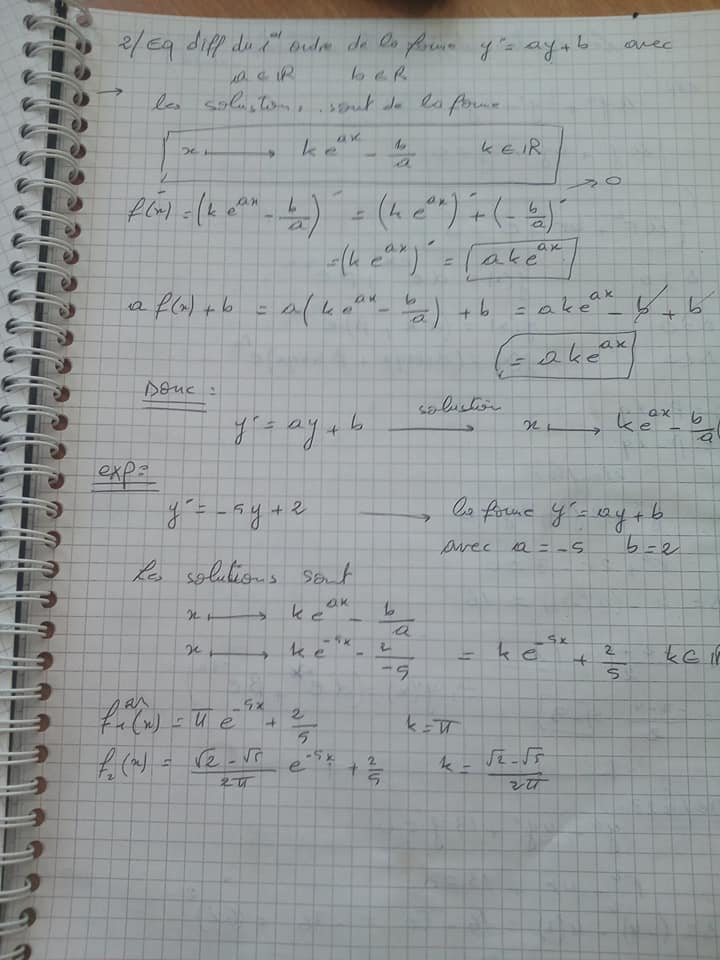 2/ Eq diff du 1er ordre de la forme y' = ay + b avec
a ∈ ℝ b ∈ ℝ
→ les solutions sont de la forme
x ⟼ k e^{ax} - b/a k ∈ ℝ
f'(x) = (k e^{ax} - b/a)' = (k e^{ax})' + (-b/a)' → 0
= (k e^{ax})' = a k e^{ax}
a f(x) + b = a(k e^{ax} - b/a) + b = a k e^{ax} - b + b
= a k e^{ax}
Donc :
y' = ay + b solution → x ⟼ k e^{ax} - b/a
exp:
y' = -5y + 2 → la forme y' = ay + b
avec a = -5 b = 2
les solutions sont
x ⟼ k e^{ax} - b/a
x ⟼ k e^{-5x} - 2/-5 = k e^{-5x} + 2/5 k ∈ ℝ
f₁(x) = π e^{-5x} + 2/5 k = π
f₂(x) = (√2 - √5)/2π e^{-5x} + 2/5 k = (√2 - √5)/2π